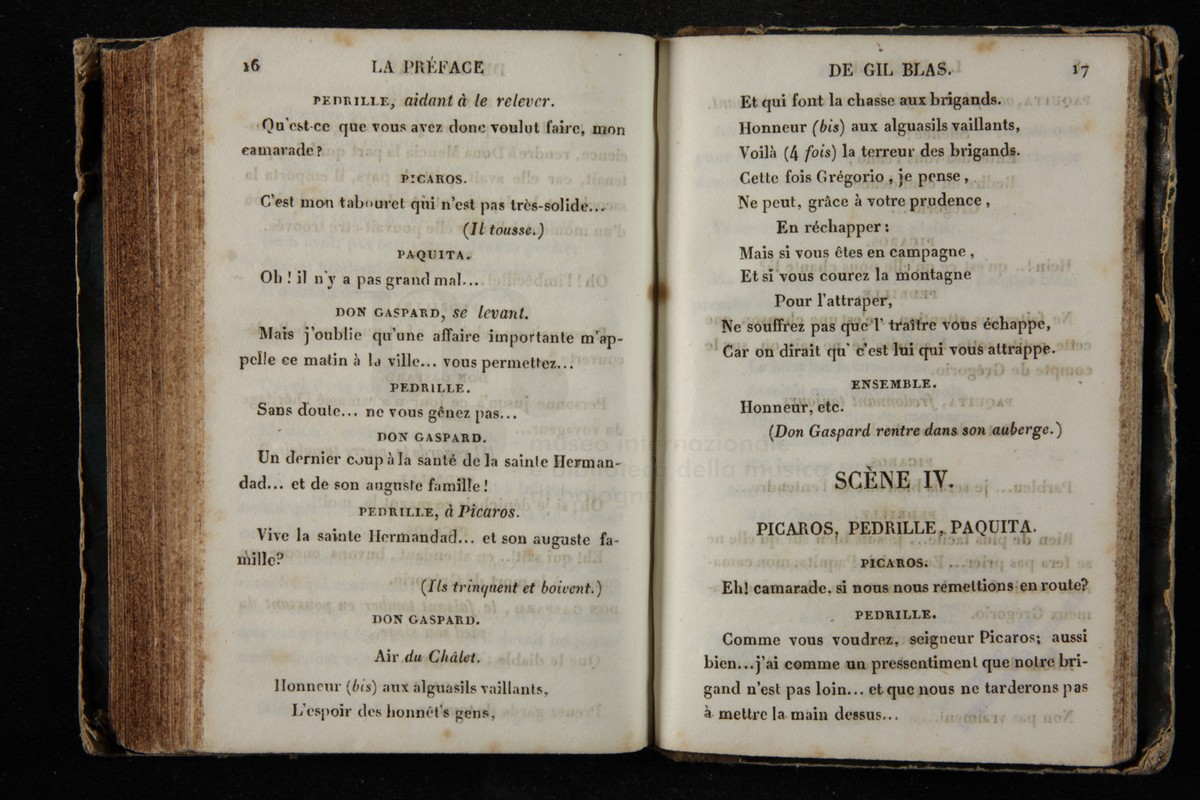 16 LA PRÉFACE
PEDRILLE, aidant à le relever.
Qu'est-ce que vous avez donc voulut faire, mon
camarade?
PICAROS.
C'est mon tabouret qui n'est pas très-solide...
(Il tousse.)
PAQUITA.
Oh ! il n'y a pas grand mal...
DON GASPARD, se levant.
Mais j'oublie qu'une affaire importante m'ap-
pelle ce matin à la ville... vous permettez...
PEDRILLE.
Sans doute... ne vous gênez pas...
DON GASPARD.
Un dernier coup à la santé de la sainte Herman-
dad... et de son auguste famille !
PEDRILLE, à Picaros.
Vive la sainte Hermandad... et son auguste fa-
mille?
(Ils trinquent et boivent.)
DON GASPARD.
Air du Châlet.
Honneur (bis) aux alguasils vaillants,
L'espoir des honnêt's gens,
DE GIL BLAS. 17
Et qui font la chasse aux brigands.
Honneur (bis) aux alguasils vaillants,
Voilà (4 fois) la terreur des brigands.
Cette fois Grégorio, je pense,
Ne peut, grâce à votre prudence,
En réchapper :
Mais si vous êtes en campagne,
Et si vous courez la montagne
Pour l'attraper,
Ne souffrez pas que l' traître vous échappe,
Car on dirait qu' c'est lui qui vous attrappe.
ENSEMBLE.
Honneur, etc.
(Don Gaspard rentre dans son auberge.)
SCÈNE IV.
PICAROS, PEDRILLE, PAQUITA.
PICAROS.
Eh! camarade, si nous nous remettions en route?
PEDRILLE.
Comme vous voudrez, seigneur Picaros; aussi
bien...j'ai comme un pressentiment que notre bri-
gand n'est pas loin... et que nous ne tarderons pas
à mettre la main dessus...
museo internazionale
e biblioteca della musica
di bologna